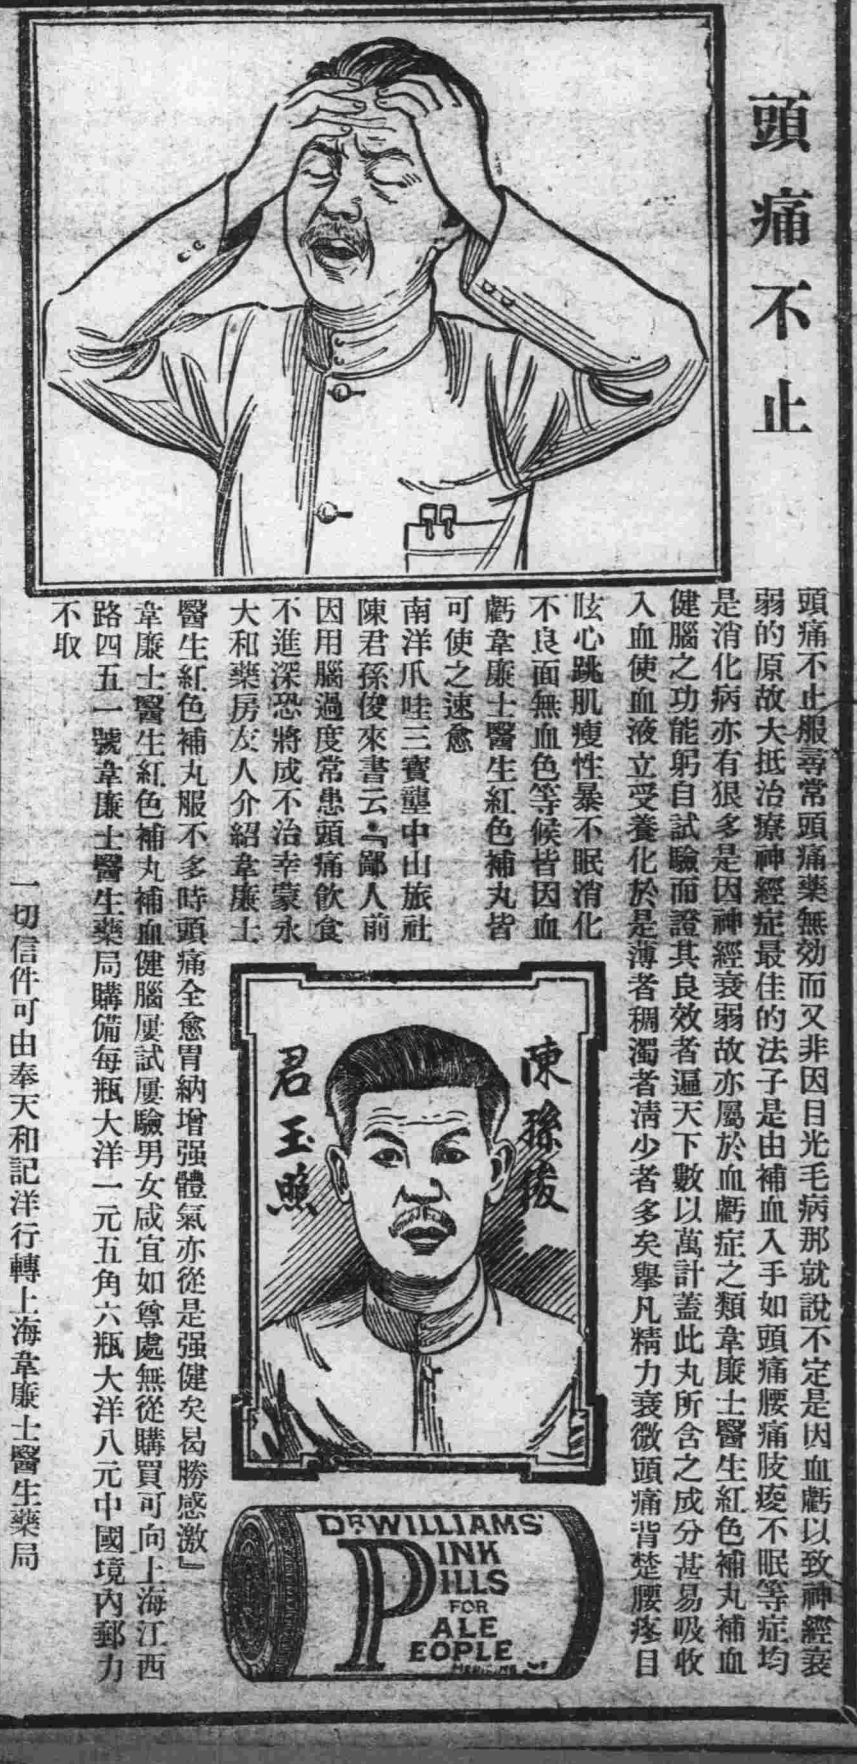 頭痛不止
頭痛不止服尋常頭痛藥無効而又非因目光毛病那就說不定是因血虧以致神經衰
弱的原故大抵治療神經症最佳的法子是由補血入手如頭痛腰痛肢痠不眠等症均
是消化病亦有狠多是因神經衰弱故亦屬於血虧症之類韋廉士醫生紅色補丸補血
健腦之功能躬自試驗而證其良效者遍天下數以萬計蓋此丸所含之成分甚易吸收
入血使血液立受養化於是薄者稠濁者淸少者多矣舉凡精力衰微頭痛背楚腰疼目
眩心跳肌瘦性暴不眠消化
不良面無血色等候皆因血
虧韋廉士醫生紅色補丸皆
可使之速愈
南洋爪哇三寶壟中山旅社
陳君孫俊來書云『鄙人前
因用腦過度常患頭痛飮食
不進深恐將成不治幸蒙永
大和藥房友人介紹韋廉士
醫生紅色補丸服不多時頭痛全愈胃納增强體氣亦從是强健矣曷勝感激』
韋廉士醫生紅色補丸補血健腦屢試屢驗男女咸宜如尊處無從購買可向上海江西
路四五一號韋廉士醫生藥局購備每瓶大洋一元五角六瓶大洋八元中國境內郵力
不取
一切信件可由奉天和記洋行轉上海韋廉士醫生藥局
陳孫俊
君玉照
DR WILLIAMS'
PINK
PILLS
FOR
PALE
PEOPLE